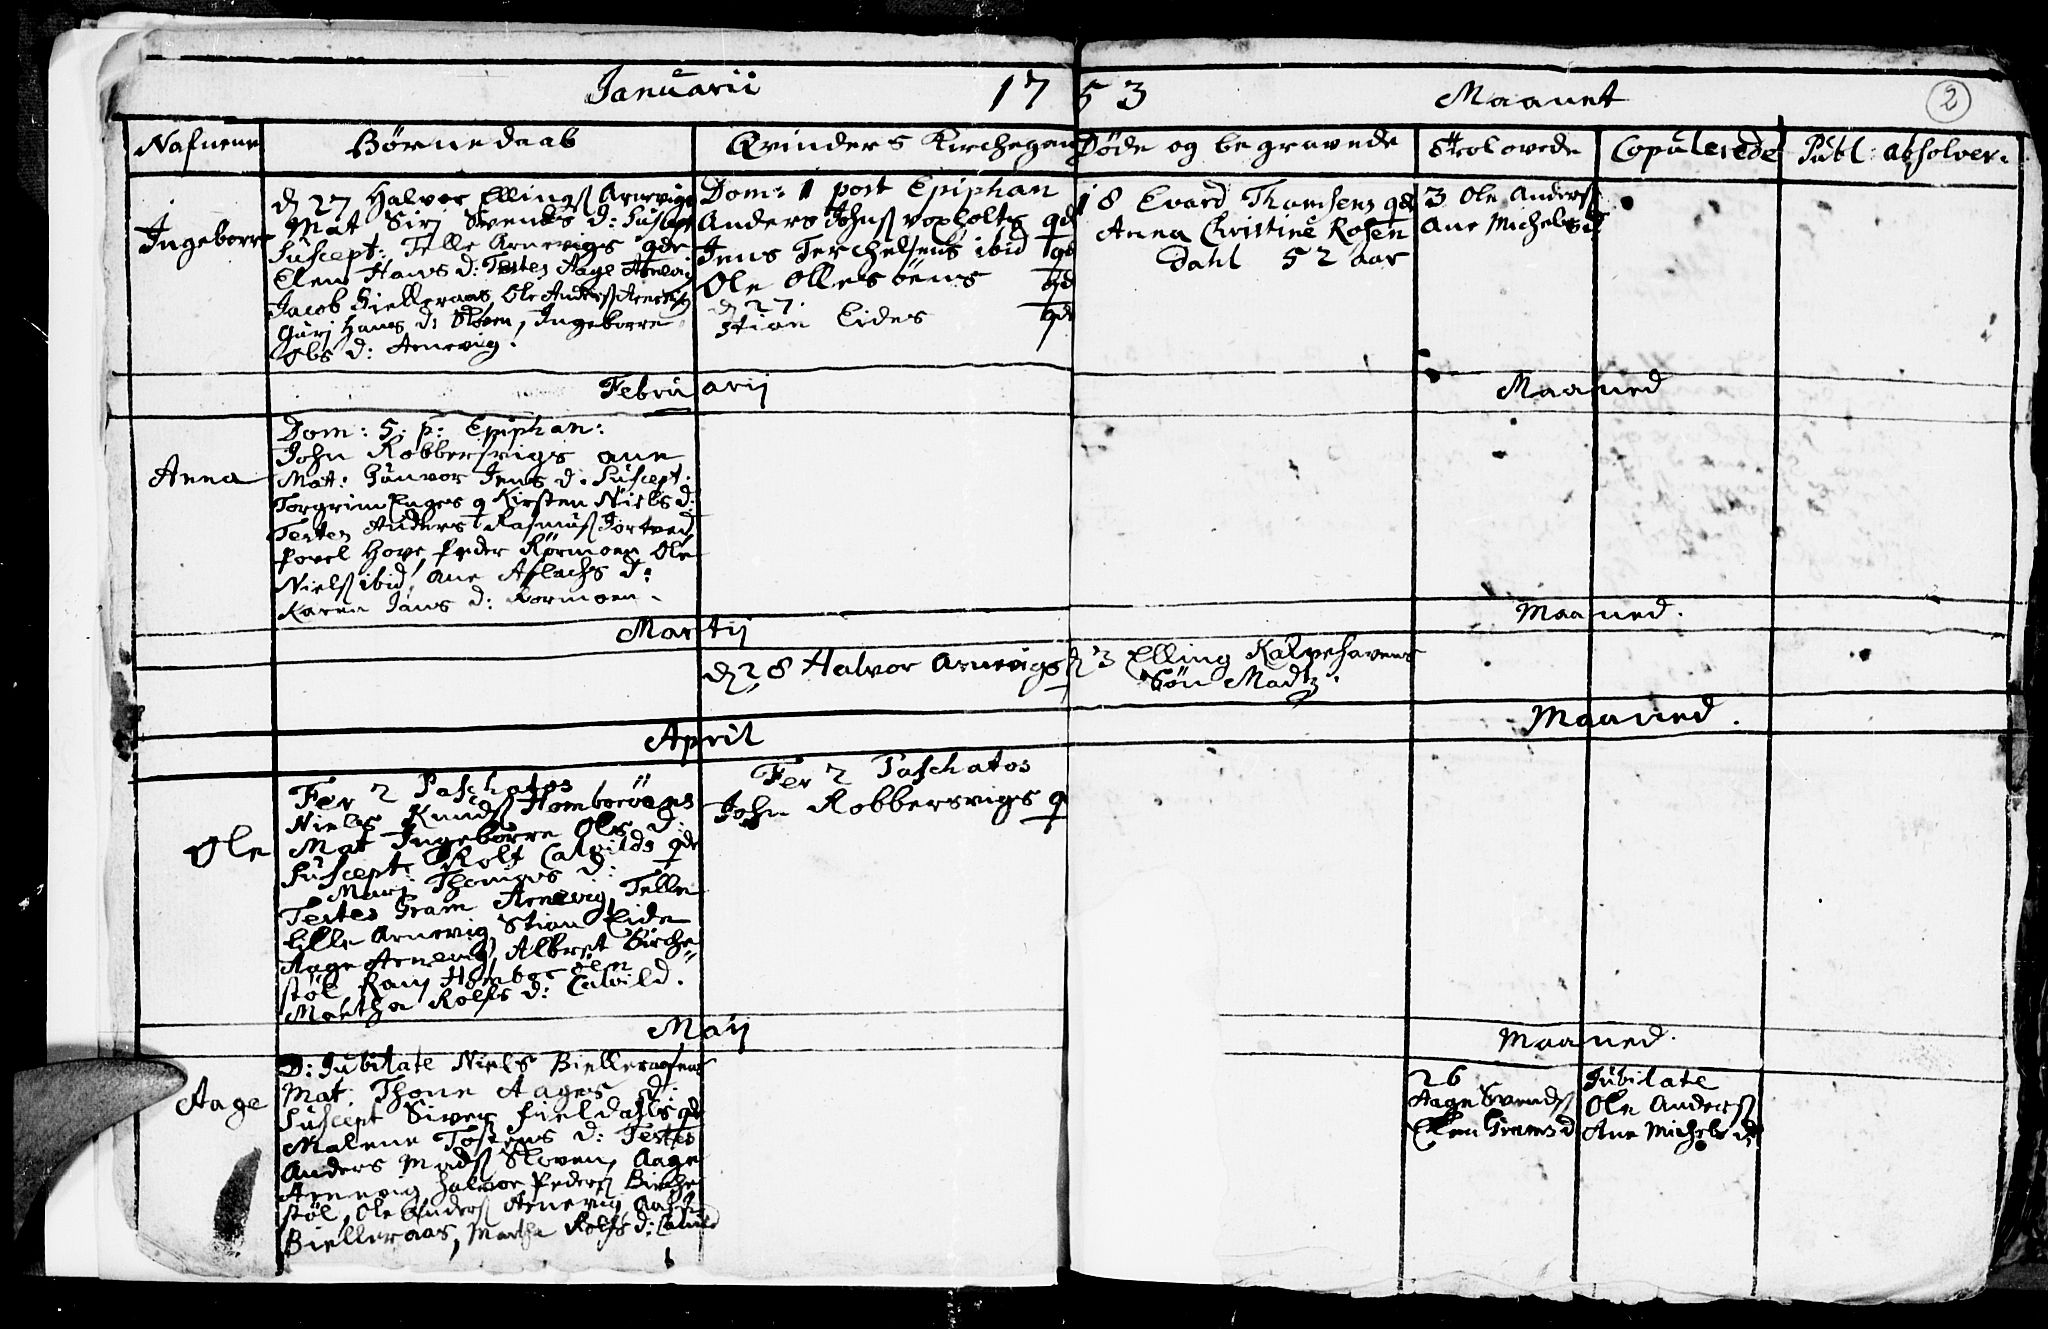 Januarii 17 53 Maanet
2
Nafnene Børnedaab Qvinders Kirchegan Døde og begravede Trolovede Copulerede Publ: absolver.
Ingeborre
d 27 Halvor Ellings Arnevigs
Mat Siri Svends d:
Suscept: Telle Arnevigs qde
Elen Hans d: Testes Aage Arnevig
Jacob Bielleraas, Ole Anders Arnevig
Guri Hans d: Sløven, Ingeborre
Ols d: Arnevig.
Dom: 1 post Epiphan
Anders Johns voxholts qde
Jens Terchelsens ibid qde
Ole Ollesøens qde
d 27
Stian Eides qde
18 Evard Thomsens qde
Anna Christine Rosen
Dahl 52 aar
3 Ole Anders
Ane Michels d
Februarij Maaned
Anna
Dom: 5: p: Epiphan:
John Robbersvigs ane
Mat: Gunvor Jens d: Suscept:
Torgrim Enges q Kirsten Niels d:
Testes Anders Rasmus Jortved
Povel Hove, Peder Rørmoen Ole
Niels ibid, Ane Aslachs d:
Karen Jans d: Rormoen.
Martij Maaned.
d 28 Halvor Arnevigs q
d 3 Elling Kalvehavens
Søn Madz.
April Maaned.
Ole
Fer 2 Paschatos
Niels Knuds Homborøens
Mat Ingeborre Ols d:
Suscept: Rolf Calvilds qde
Mari Thomes d:
Testes Gram Arnevig, Telle
Lille Arnevig, Stian Eide
Aage Arnevig, Albret Birche"
støl Homborøen
Martha Rolfs d: Calvild.
Fer 2 Paschatos
John Robbersvigs q
Maij Maaned.
Aage
D: Jubilate Niels Bielleraasens
Mat: Thone Aages d:
Suscept Siver qde
Malene Tostens d: Testes
Anders Mads Sloven, Aage
Arnevig, Halvor Peders Birche
støl, Ole Anders Arnevig,
Bielleraas, Martha Rolfs d: Calvild
26
Aage Svends
Ellen Grams d
Jubilate
Ole Anders
Ane Michels d